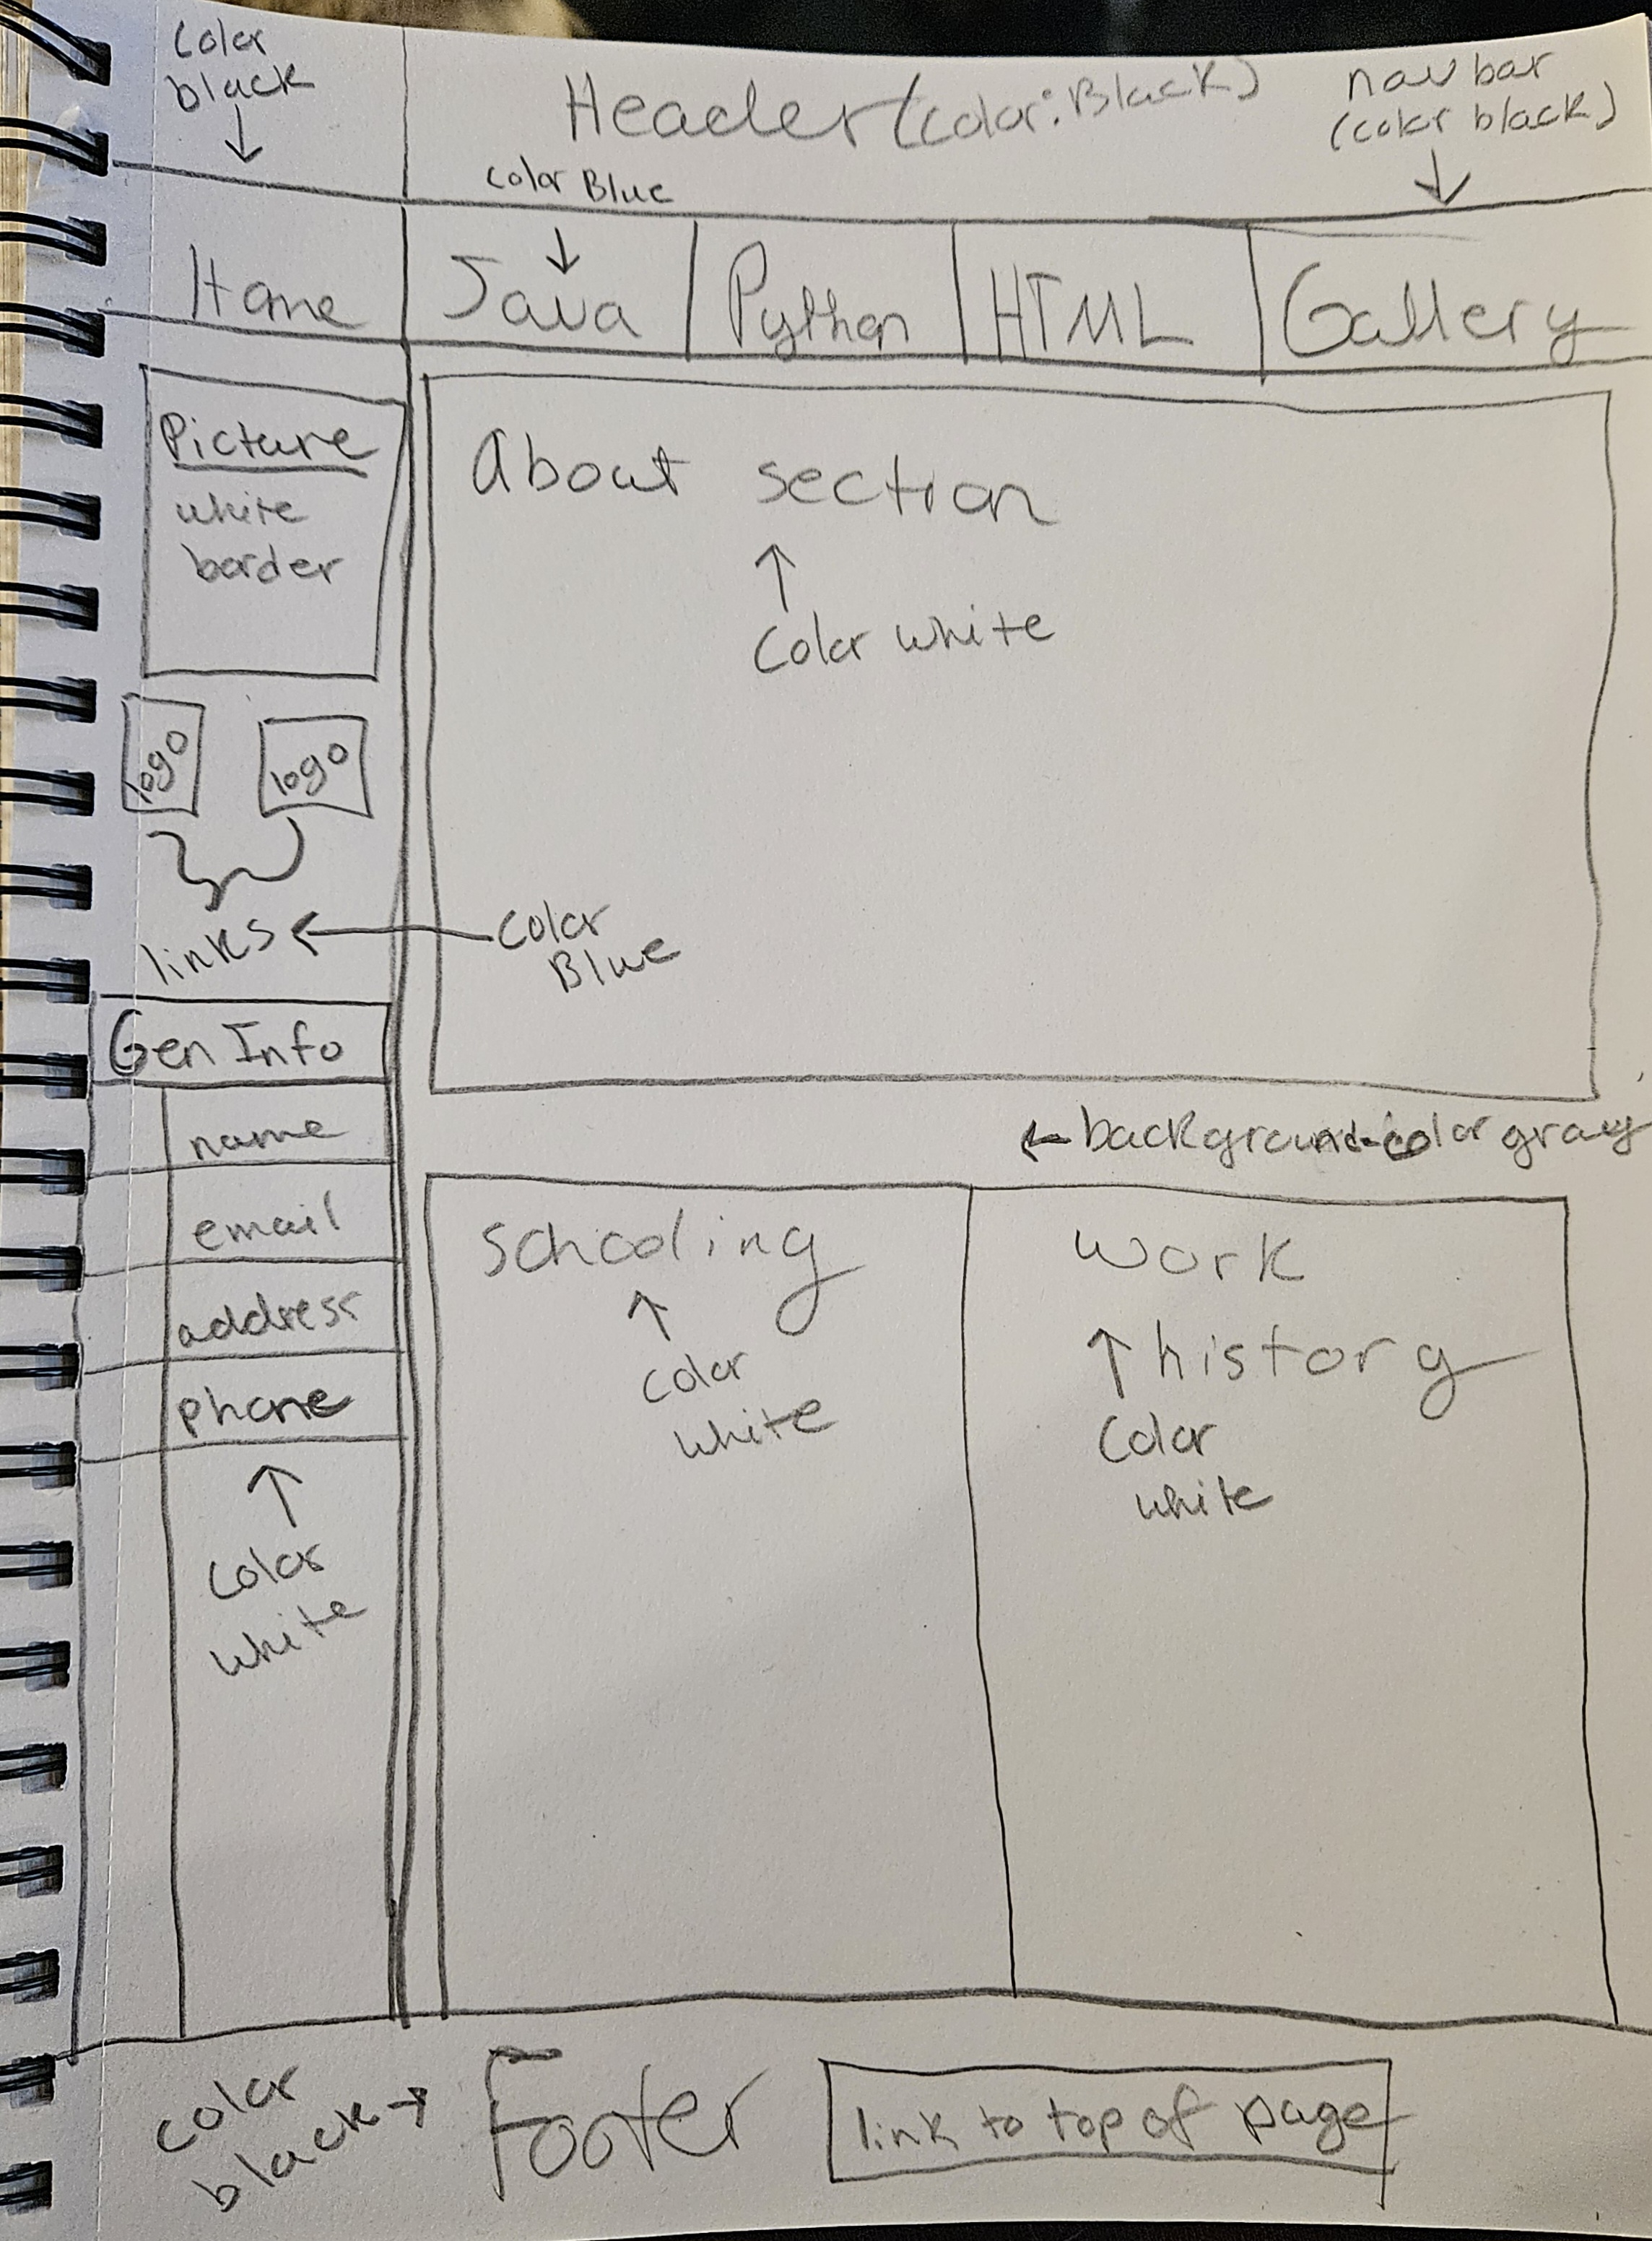 Color
black
Header (color: Black)
nav bar
(color black)
Color Blue
Home
Java
Python
HTML
Gallery
Picture
white
border
About section
Color white
logo
logo
links
Color
Blue
Gen Info
name
email
address
phone
Color
white
background-color gray
Schooling
Color
white
Work
history
Color
white
Color
black
Footer
link to top of page